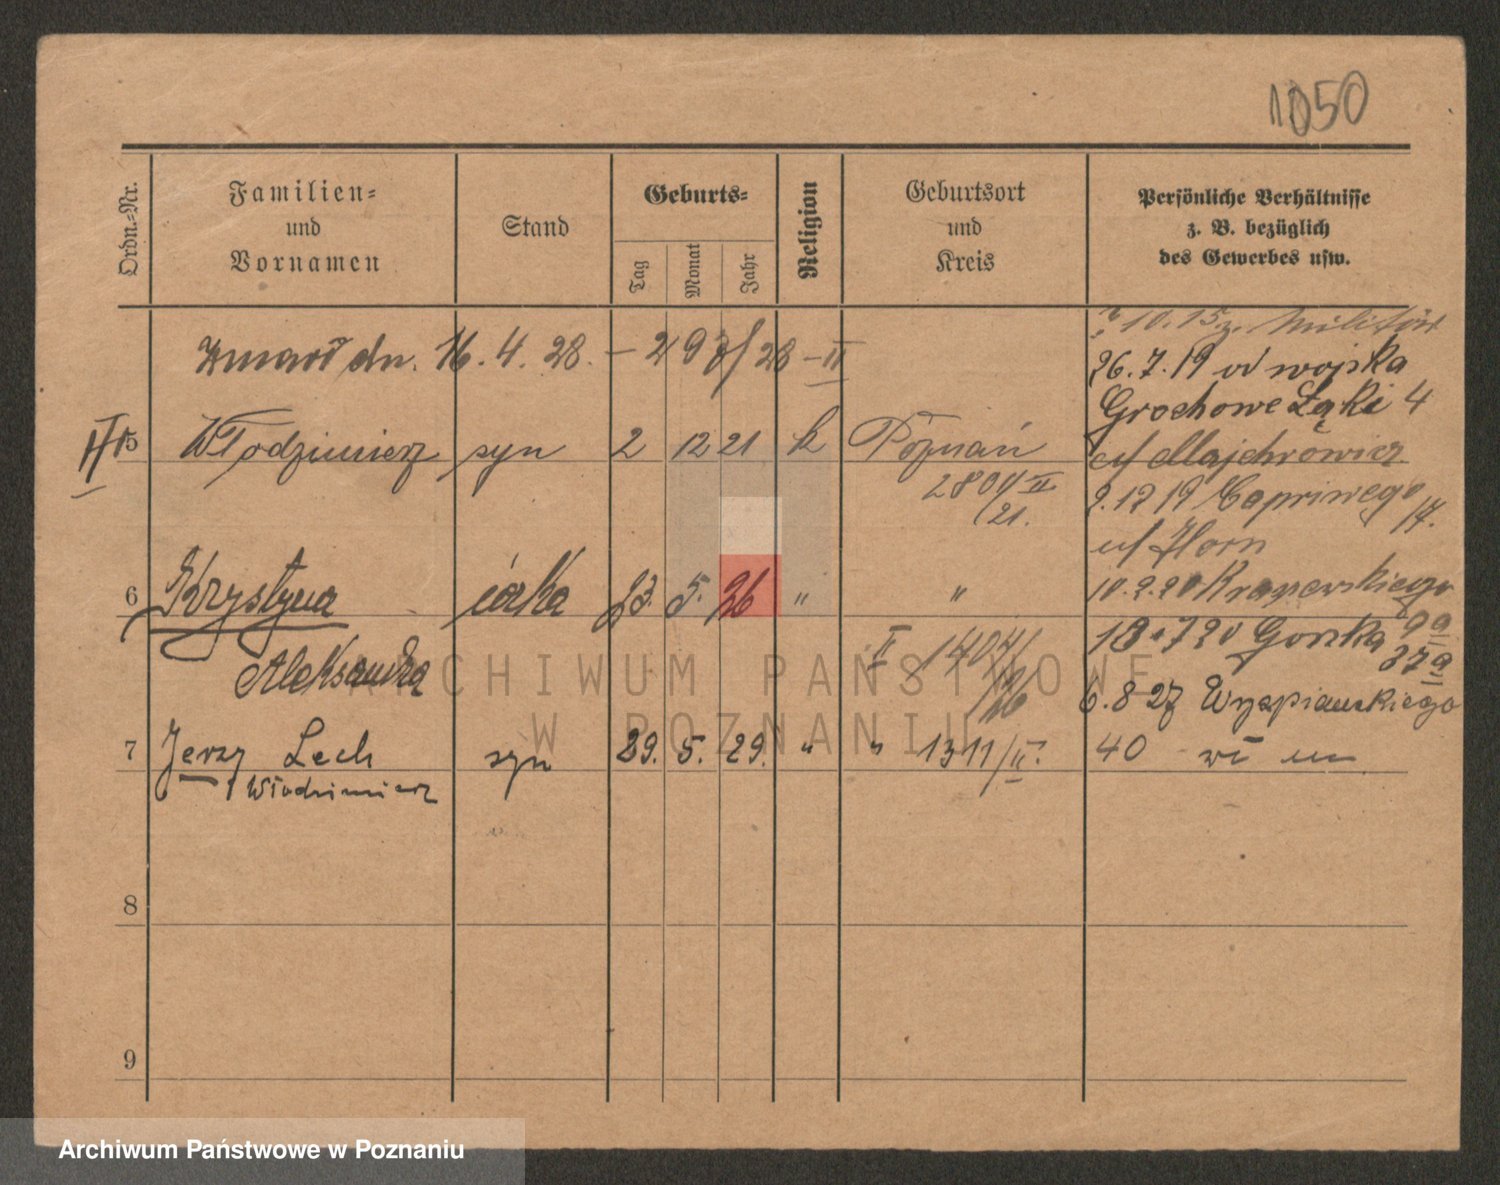 1050
Ordn.=Nr.
Familien=
und
Vornamen
Stand
Geburts=
Tag
Monat
Jahr
Religion
Geburtsort
und
Kreis
Persönliche Verhältnisse
z. B. bezüglich
des Gewerbes usw.
10. 15 z. Militär
Zmarł dn. 16. 4. 28. – 298/28 – II
26. 7. 19 od wojska
Grochowe Łąki 4
5 Włodzimierz syn 2 12 21 k Poznań
u/ Majchrowicz
2804 II
/21.
2. 12 19 Capriwego 17.
u/ Horn
6 Krystyna córka 23. 5. 26 " "
10. 2. 20 Kraszewskiego 9a
Aleksandra
II 1404/
/26
18. 7 20 Gorska 37a
6. 8 27 Wyspiańskiego
7 Jerzy Lech syn 29. 5. 29. " " 1311/II.
40
Włodzimierz
8
9
ARCHIWUM PAŃSTWOWE
W POZNANIU
Archiwum Państwowe w Poznaniu